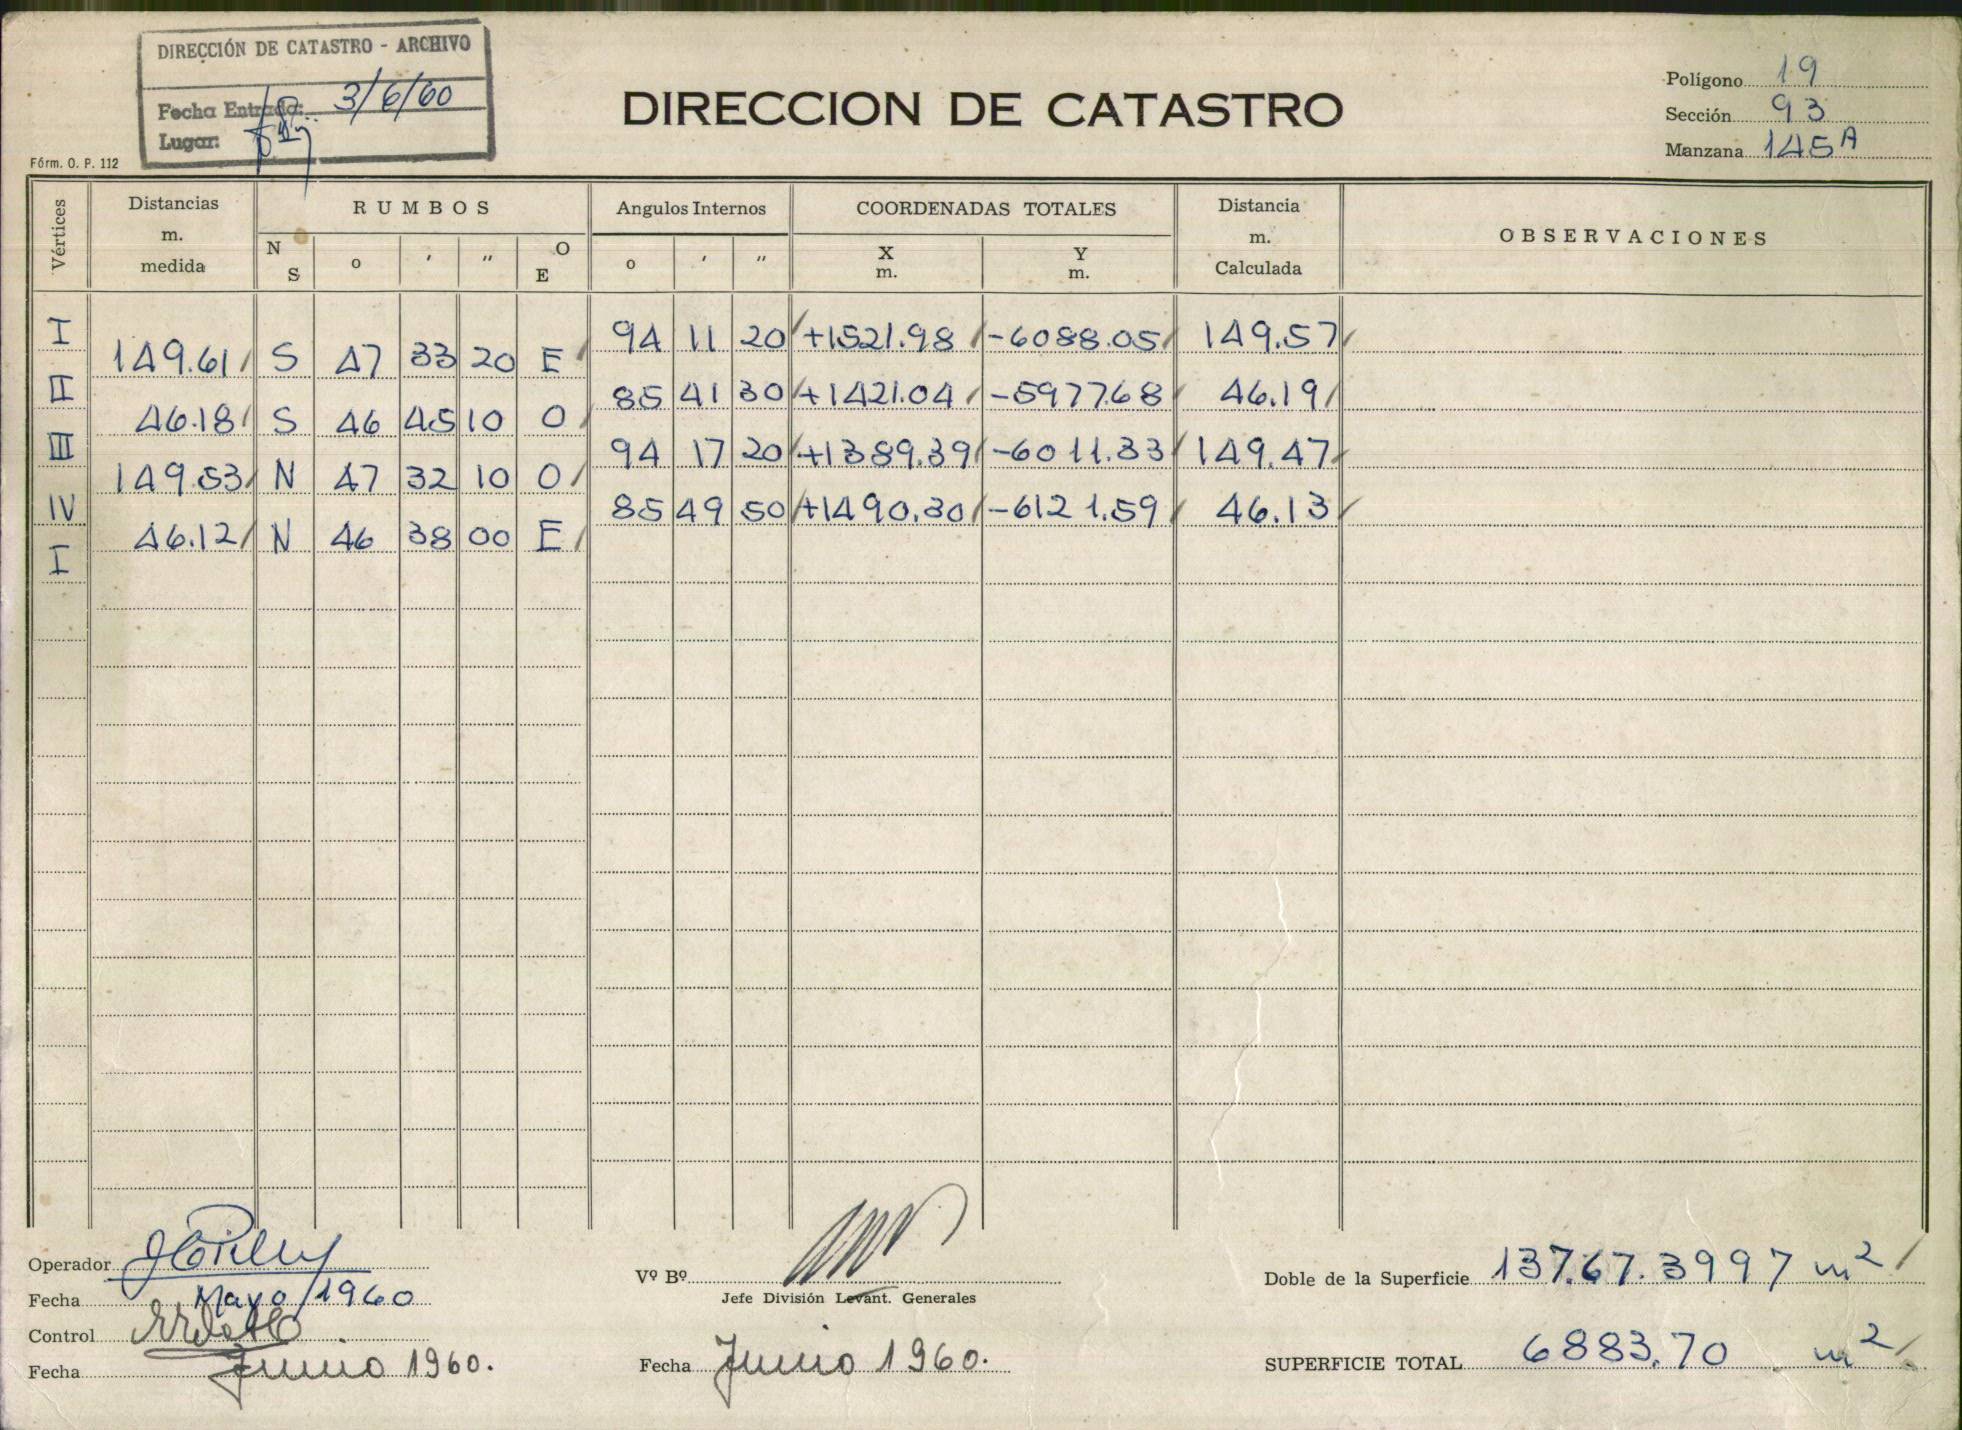 DIRECCIÓN DE CATASTRO - ARCHIVO
Fecha Entrada: 3/6/60
Lugar:
Fórm. O. P. 112
DIRECCION DE CATASTRO
Polígono 19
Sección 93
Manzana 145A
Vértices
Distancias m. medida
RUMBOS
N S o ' " O E
Angulos Internos
o ' "
COORDENADAS TOTALES
X m. Y m.
Distancia m. Calculada
OBSERVACIONES
I 94 11 20 +1521.98 -6088.05 149.57
149.61 S 47 33 20 E
II 85 41 30 +1421.04 -5977.68 46.19
46.18 S 46 45 10 O
III 94 17 20 +1389.39 -6011.33 149.47
149.53 N 47 32 10 O
IV 85 49 50 +1490.30 -6121.59 46.13
46.12 N 46 38 00 E
I
Operador
Fecha Mayo/1960
Control
Fecha Junio 1960.
Vº Bº
Jefe División Levant. Generales
Fecha Junio 1960.
Doble de la Superficie 137.67.3997 m2
SUPERFICIE TOTAL 6883.70 m2